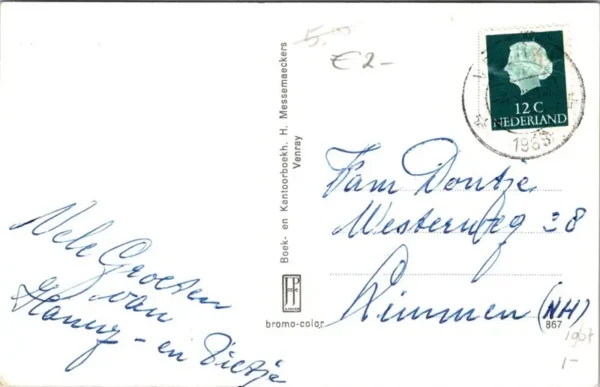 Vele Groeten
van
Hanny - en Pietje
Boek- en Kantoorboekh. H. Messemaeckers
Venray
bromo-color
5,-
€2-
12 C
NEDERLAND
1963
Fam Dontje
Westerweg 38
Limmen (NH)
867
1-